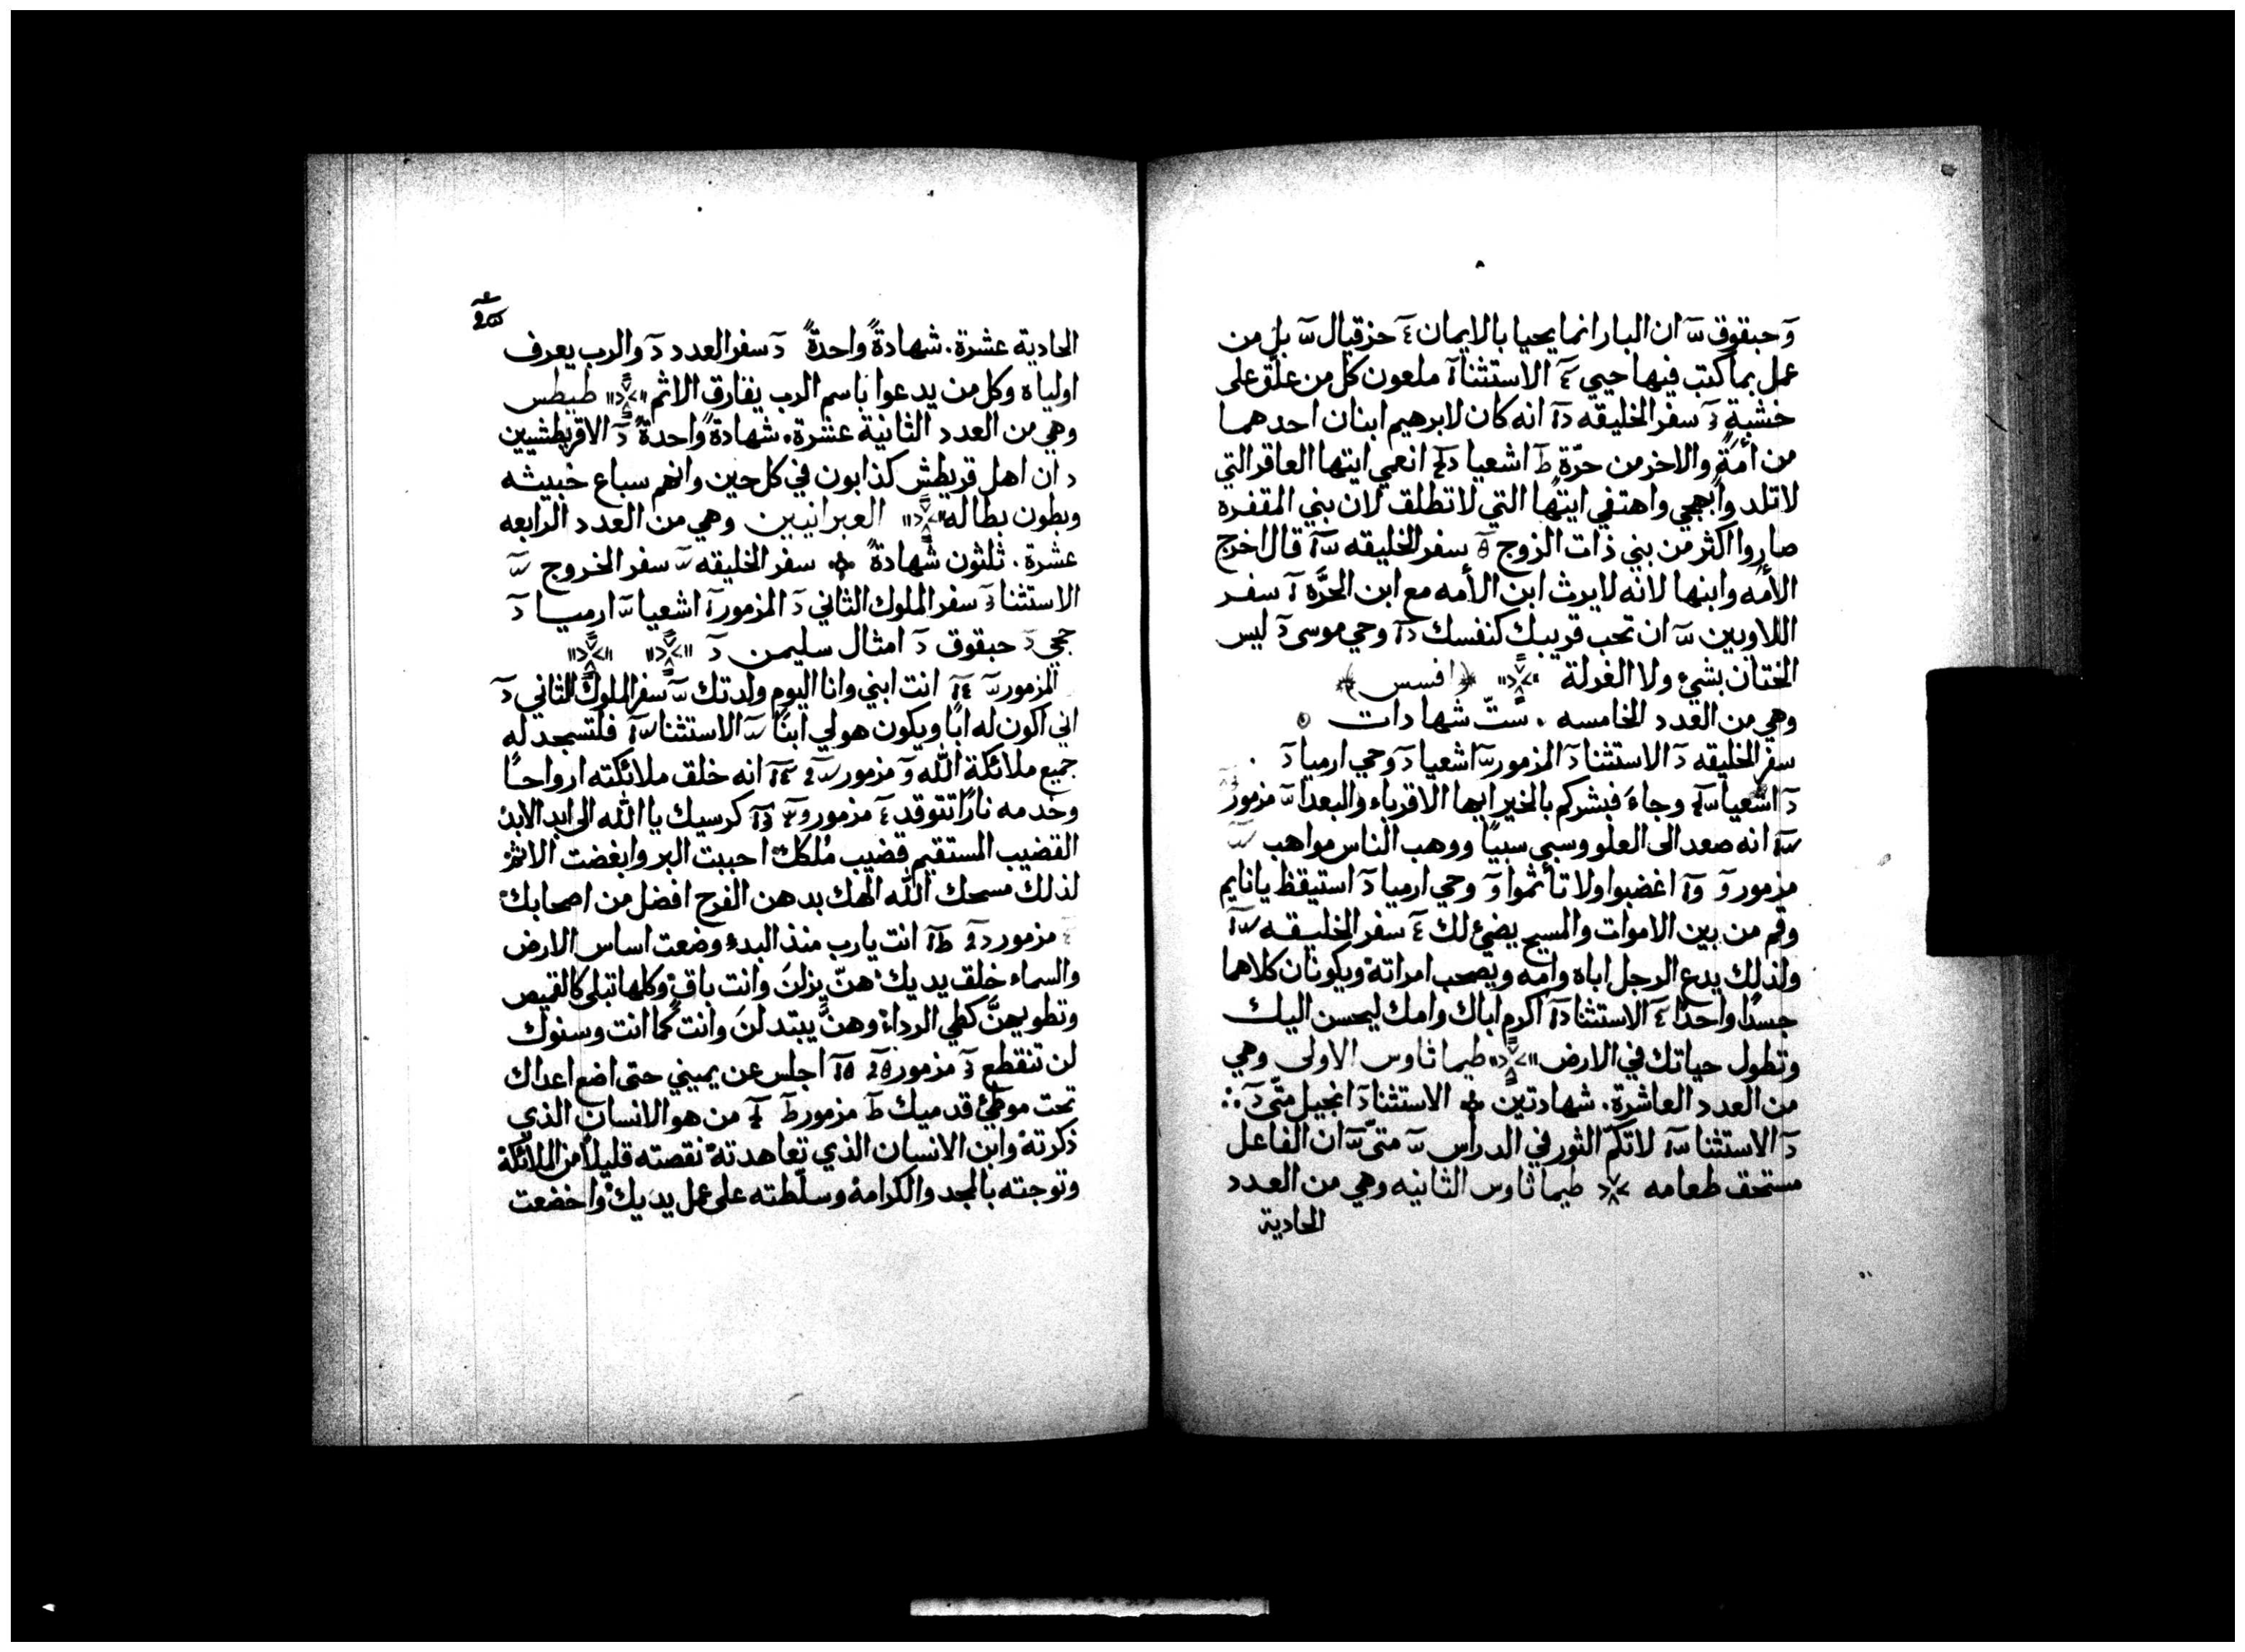 وحبقوق ان البار انما يحيا بالايمان حزقيال بل من
عمل بما كتب فيها حيي الاستثنا ملعون كل من علّق على
خشبةٍ سفر الخليقه انه كان لابرهيم ابنان احدهما
من أمَةٍ والاخر من حرّة اشعيا انعمي ايتها العاقر التي
لا تلد وابهجي واهتفي ايتها التي لا تطلق لان بني المقفره
صاروا اكثر من بني ذات الزوج سفر الخليقه قال اخرج
الأمَه وابنها لانه لا يرث ابن الأمه مع ابن الحرَّه سفر
اللاويين ان تحب قريبك كنفسك وحي موسى ليس
الختان بشيء ولا الغرلة افسس
وهي من العدد الخامسه . ستّ شهادات
سفر الخليقه الاستثنا المزمور اشعيا وحي ارميا
اشعيا وجاءَ فبشركم بالخير ايها الاقرباء والبعدا مزمور
انه صعد الى العلو وسبي سبيًا ووهب الناس مواهب
مزمور اغضبوا ولا تأثموا وحي ارميا استيقظ يا نايم
وقم من بين الاموات والمسيح يضئ لك سفر الخليقه
ولذلك يدع الرجل اباه وامه ويصحب امراته ويكونان كلاهما
جسدًا واحدًا الاستثنا اكرم اباك وامك ليحسن اليك
وتطول حياتك في الارض طيماثاوس الاولى وهي
من العدد العاشرة. شهادتين الاستثنا انجيل متّى
الاستثنا لا تكمّ الثور في الدراس متىّ ان الفاعل
مستحق طعامه طيماثاوس الثانيه وهي من العدد
الحادية
الحادية عشرة. شهادةً واحدةً سفر العدد والرب يعرف
اولياه وكل من يدعوا باسم الرب يفارق الاثم طيطس
وهي من العدد الثانية عشرة. شهادةً واحدةً الاقريطشيين
ان اهل قريطش كذابون في كل حين وانهم سباع خبيثه
وبطون بطاله العبرانيين وهي من العدد الرابعه
عشرة. ثلثون شهادةً سفر الخليقه سفر الخروج
الاستثنا سفر الملوك الثاني المزمور اشعيا ارميا
حجي حبقوق امثال سليمن
المزمور انت ابني وانا اليوم ولدتك سفر الملوك الثاني
اني اكون له ابًا ويكون هو لي ابنًا الاستثنا فلتسجد له
جميع ملائكة الله مزمور انه خلق ملائكته ارواحًا
وخدمه نارًا تتوقد مزمور كرسيك يا الله الى ابد الابد
القضيب المستقيم قضيب مُلكك احببت البر وابغضت الاثم
لذلك مسحك الله الهك بدهن الفرح افضل من اصحابك
مزمور انت يارب منذ البدء وضعت اساس الارض
والسماء خلق يديك هنّ يزلنَ وانت باقٍ وكلها تبلى كالقميص
وتطويهنَّ كطي الرداء وهنَّ يبتدلنَ وانت كما انت وسنوك
لن تنقطع مزمور اجلس عن يميني حتى اضع اعداك
تحت موطئ قدميك مزمور من هو الانسان الذي
ذكرته وابن الانسان الذي تعاهدته نقصته قليلًا من الملائكة
وتوجته بالمجد والكرامة وسلّطته على عمل يديك واخضعت